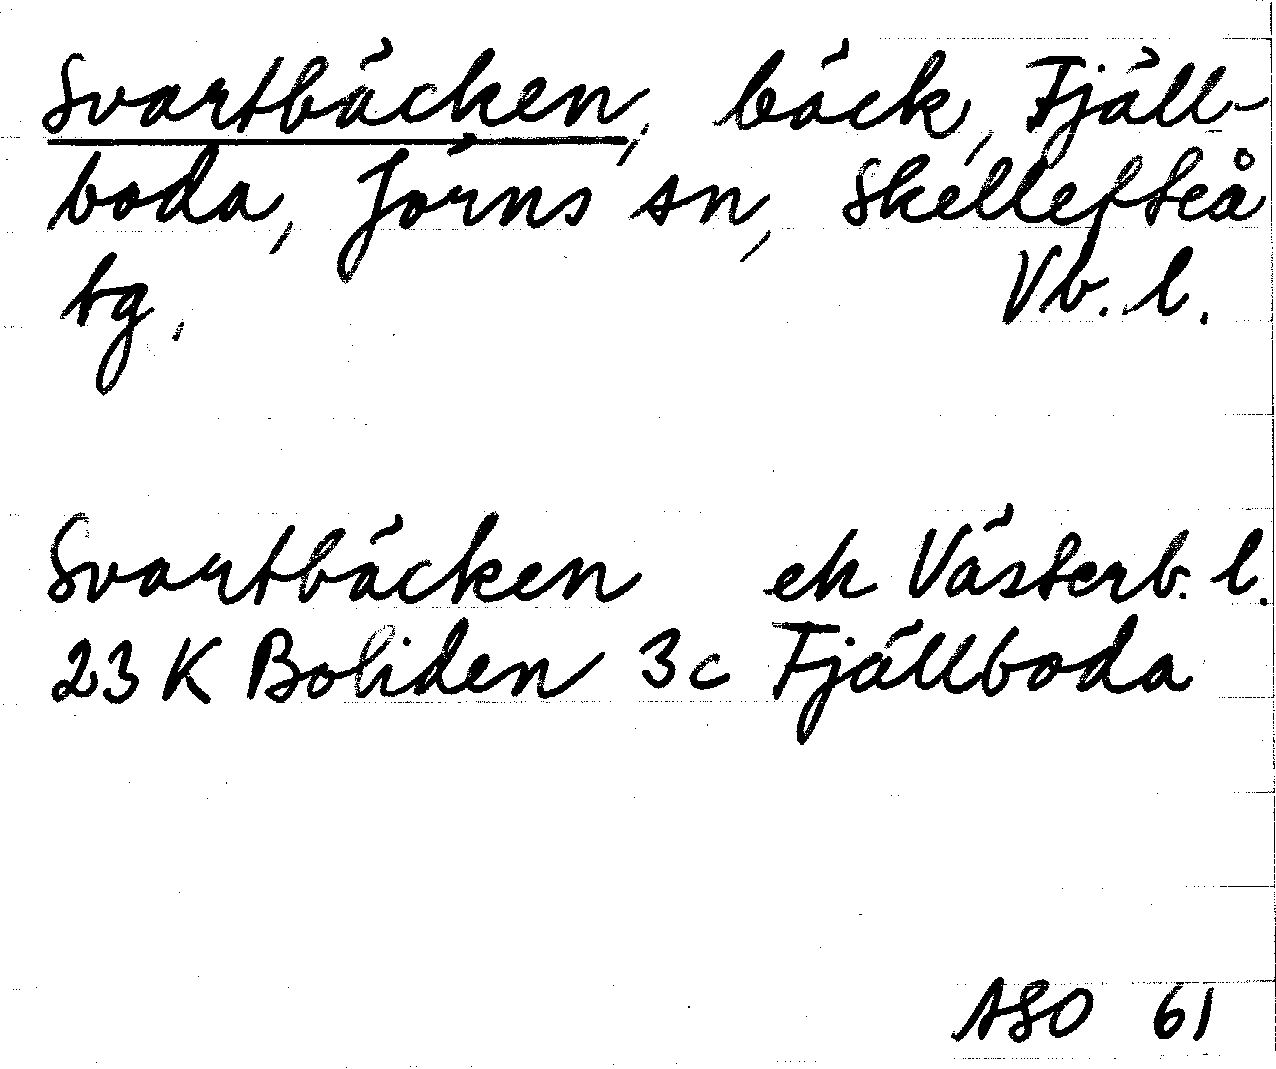 Svartbäcken, bäck, Fjäll-
boda, Jörns sn, Skellefteå
tg, Vb. l.
Svartbäcken ek Västerb. l.
23 K Boliden 3c Fjällboda
ASO 61